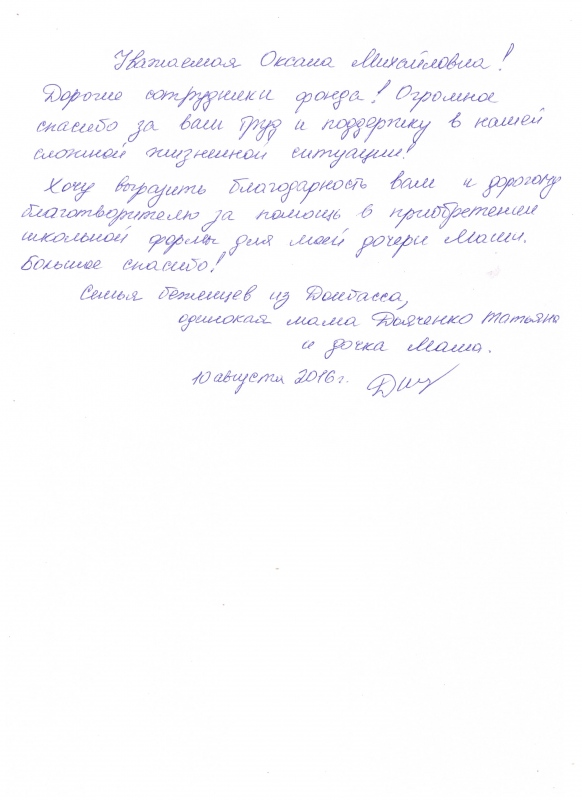 Уважаемая Оксана Михайловна!
Дорогие сотрудники фонда! Огромное
спасибо за ваш труд и поддержку в нашей
сложной жизненной ситуации!
Хочу выразить благодарность вам и дорогому
благотворителю за помощь в приобретении
школьной формы для моей дочери Маши.
Большое спасибо!
Семья беженцев из Донбасса,
одинокая мама Дояченко Татьяна
и дочка Маша.
10 августа 2016 г.